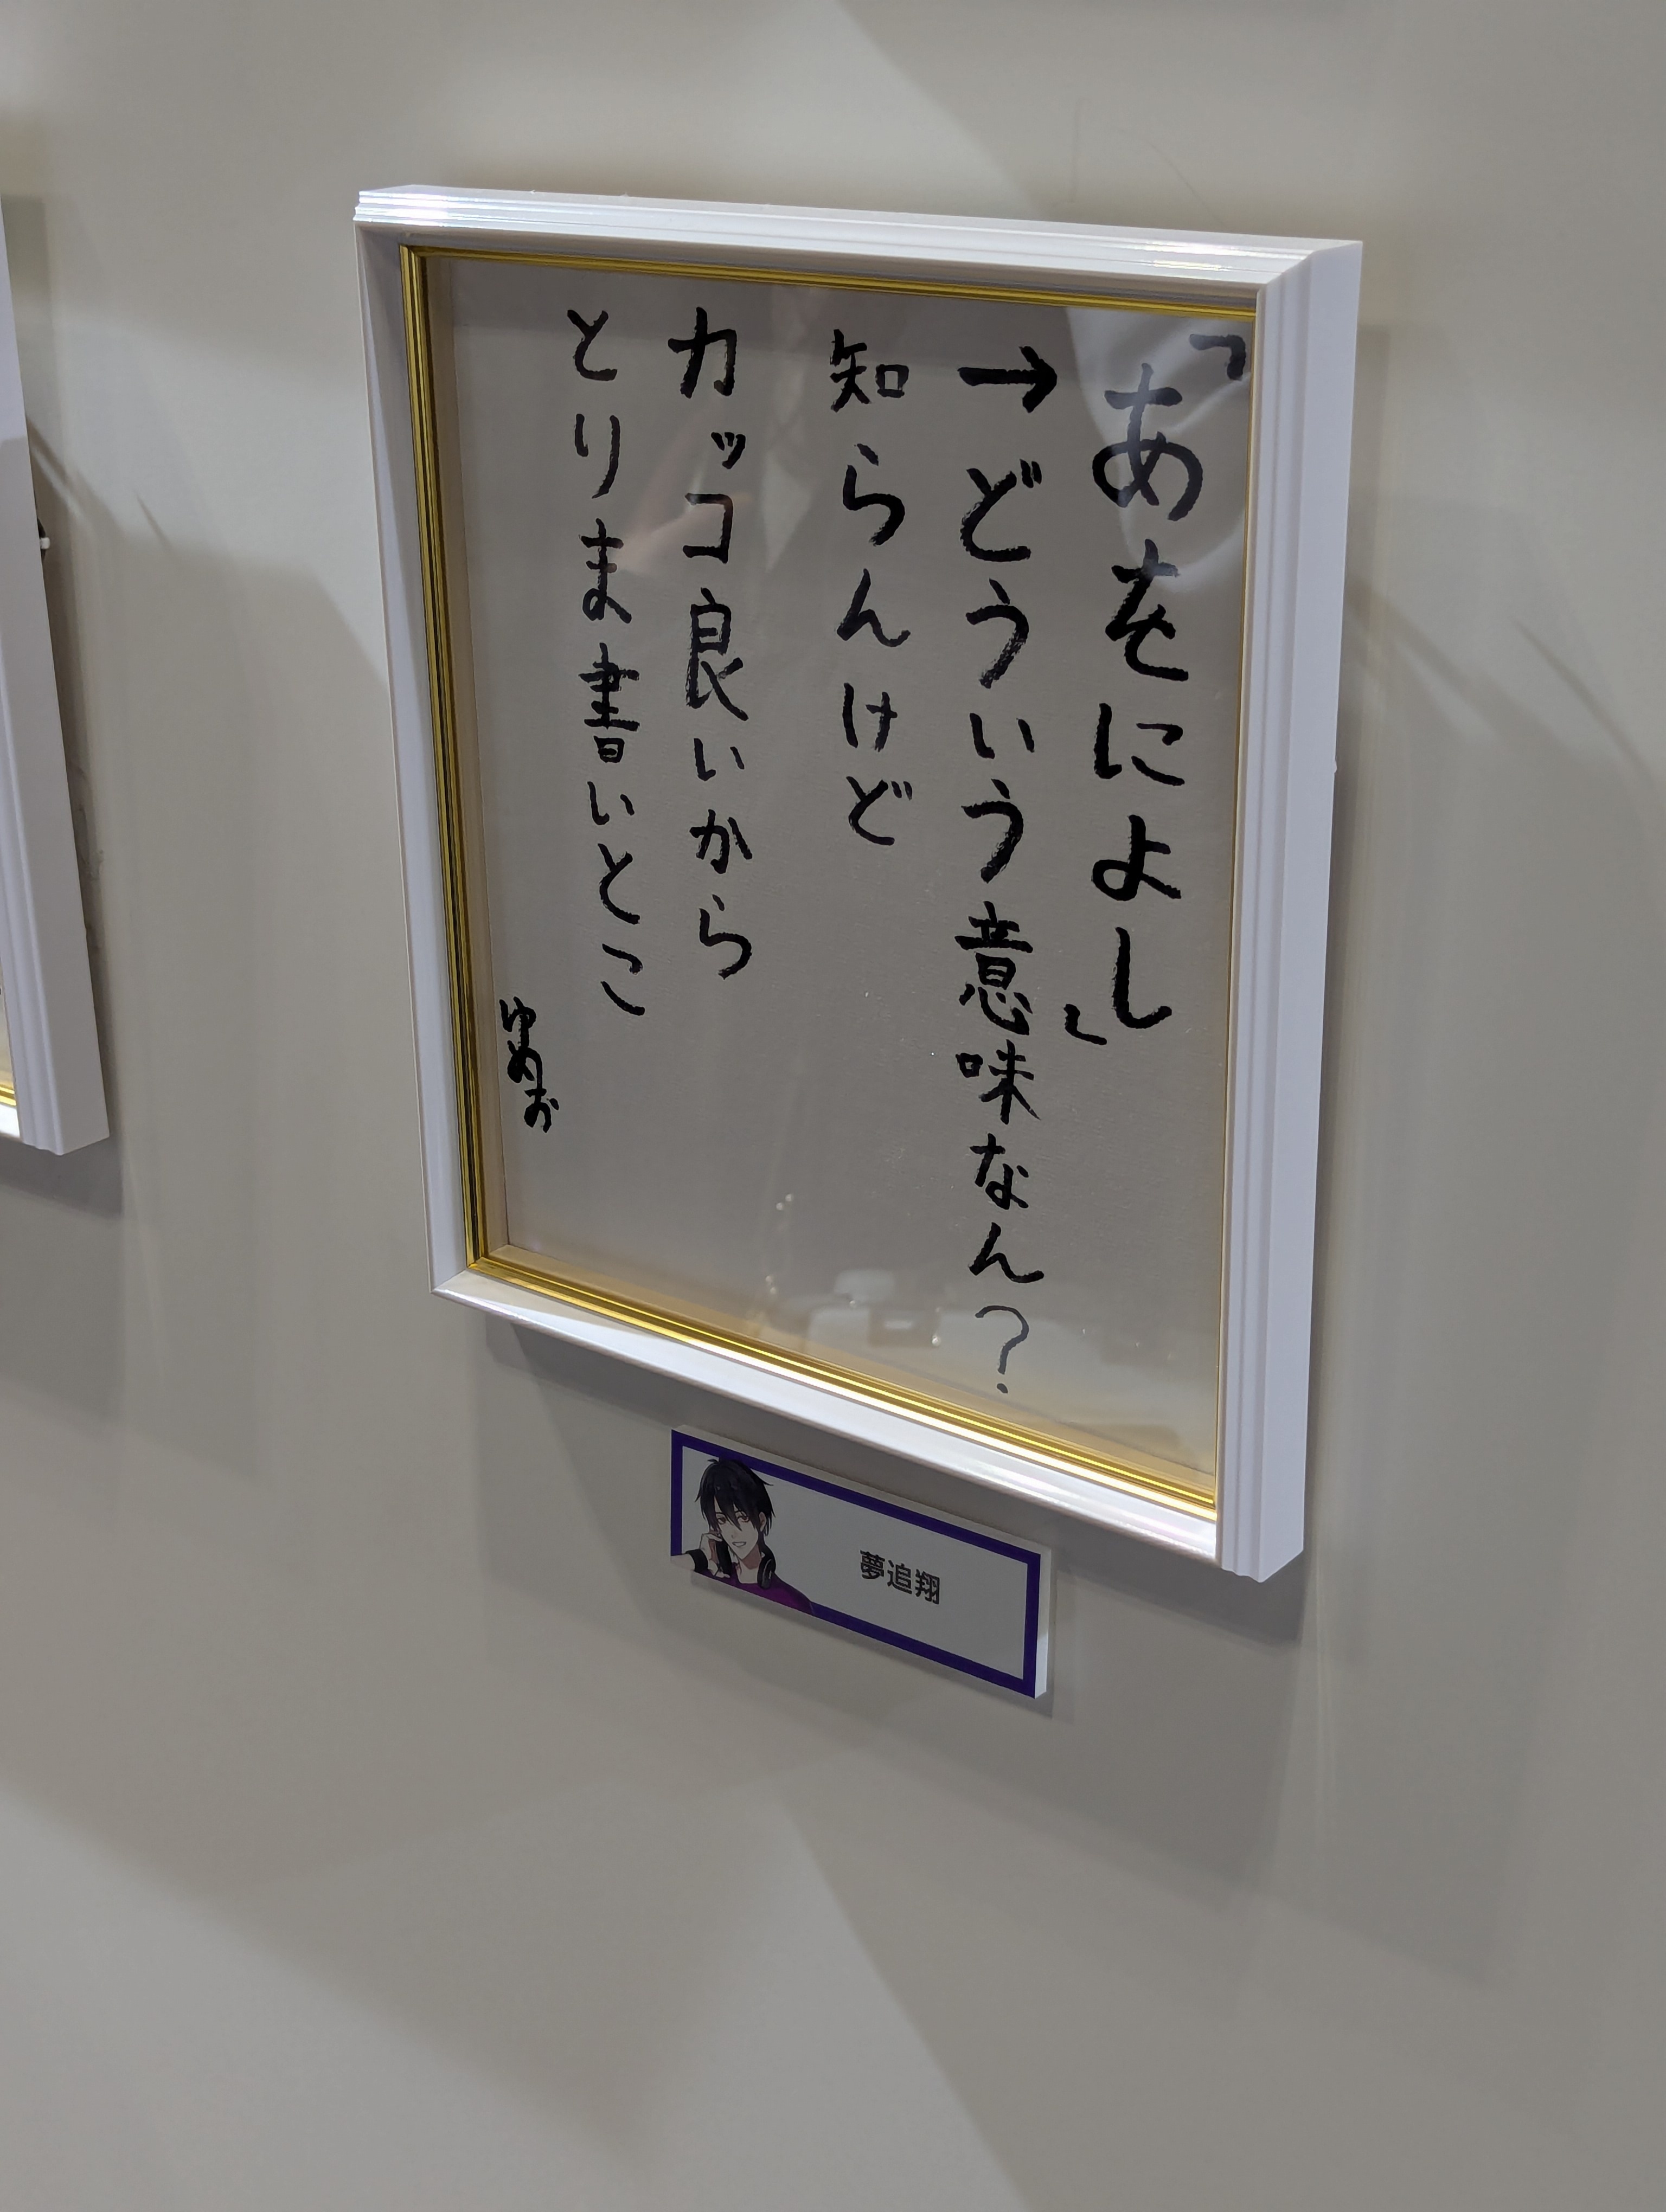 「あをによし」
→どういう意味なん？
知らんけど
カッコ良いから
とりま書いとこ
ゆめお
夢追翔